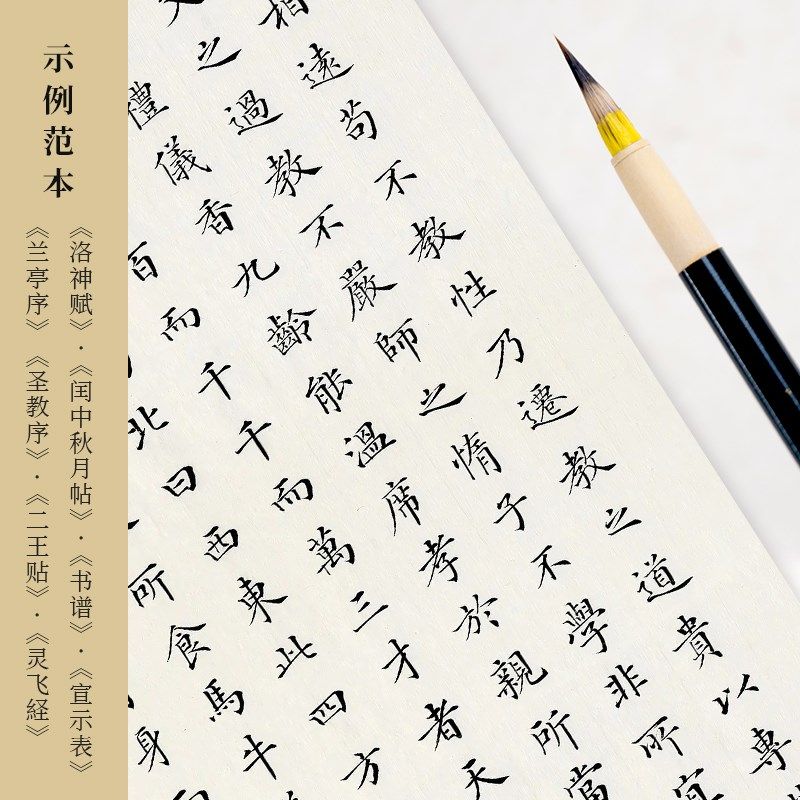 示例范本
《洛神赋》·《闰中秋月帖》·《书谱》·《宣示表》
《兰亭序》 《圣教序》·《二王贴》·《灵飞経》
相遠苟不教性乃遷教之道貴以專
之過教不嚴師之惰子不學非所宜
禮儀香九齡能溫席孝於親所當
百而千千而萬三才者天
北曰西東此四方
所食馬牛
身